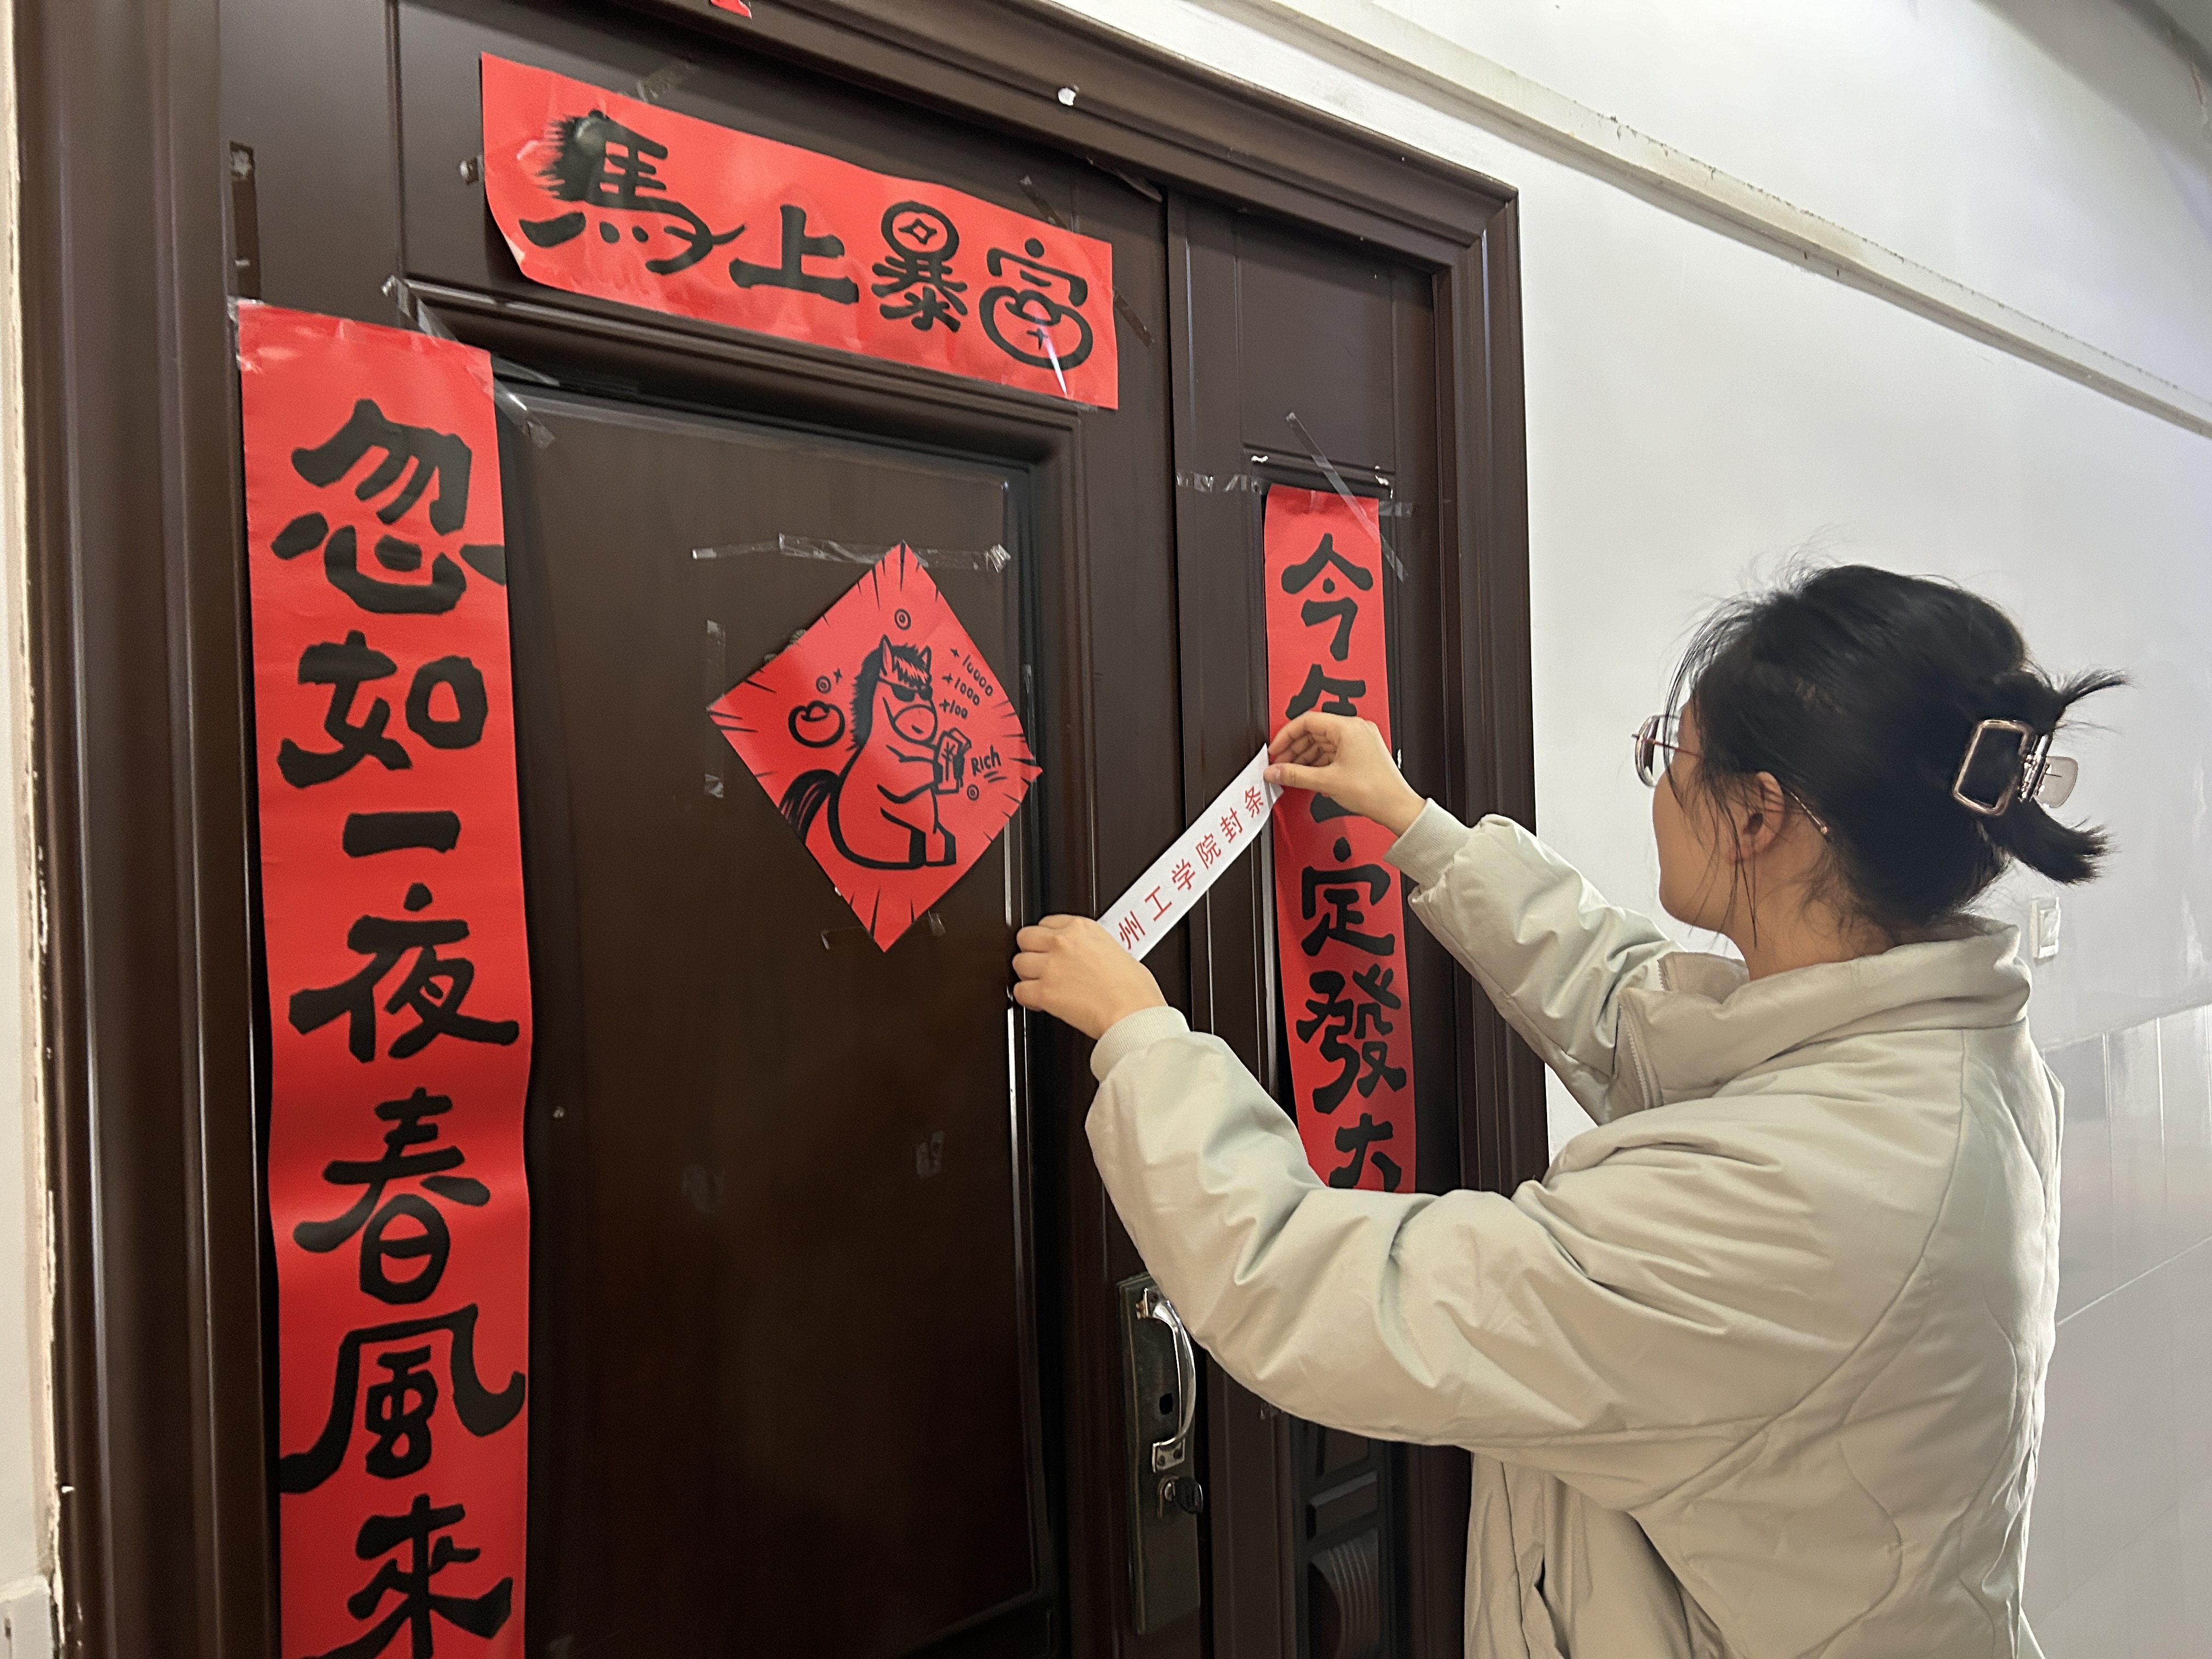 馬上暴富
忽如一夜春風來
今年一定發大
+10000
+1000
+100
Rich
州工学院封条